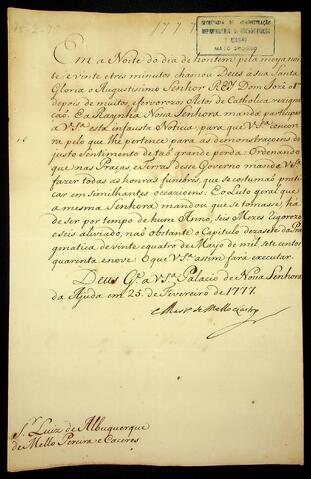 1777
SECRETARIA DE ADMINISTRAÇÃO
DEPARTAMENTO DE DOCUMENTAÇÃO
E ARQUIVO
MATO GROSSO
Em a Noite do dia de hontem pela meya noi-
te e vinte etres minutos chamou Deus a sua Santa
Gloria o Augustissimo Senhor REY Dom Jozé o 1º
depois de muitos efervorozos Actos de Catholica rezigna-
ção. Ea Raynha Nossa Senhora manda participar
a VSª esta infausta Noticia; para que VSª concor-
ra pelo que lhe pertence para as demonstraçoens do
justo Sentimento de taõ grande perda: Ordenando
que nas Praças e Terras desse Governo mande VSª
fazer todas as honras funebres, que se costumaõ prati-
car em Similhantes occazioens: Eo Luto geral que
a mesma Senhora mandou que se tomasse, há
de ser por tempo de hum Anno, seis Mezes rigorozo
eseis aliviado, naõ obstante o Capitulo dezasete da Pra-
gmatica de vinte quatro de Mayo de mil sete centos
quarenta enove: O que VSª assim fará executar.
Deus Gᵉ a VSª Palacio de Nossa Senhora
da Ajuda em 25. de Fevereiro de 1777.
Martº de Mello e Castro
Sʳ Luiz de Albuquerque
de Mello Pereira e Caceres